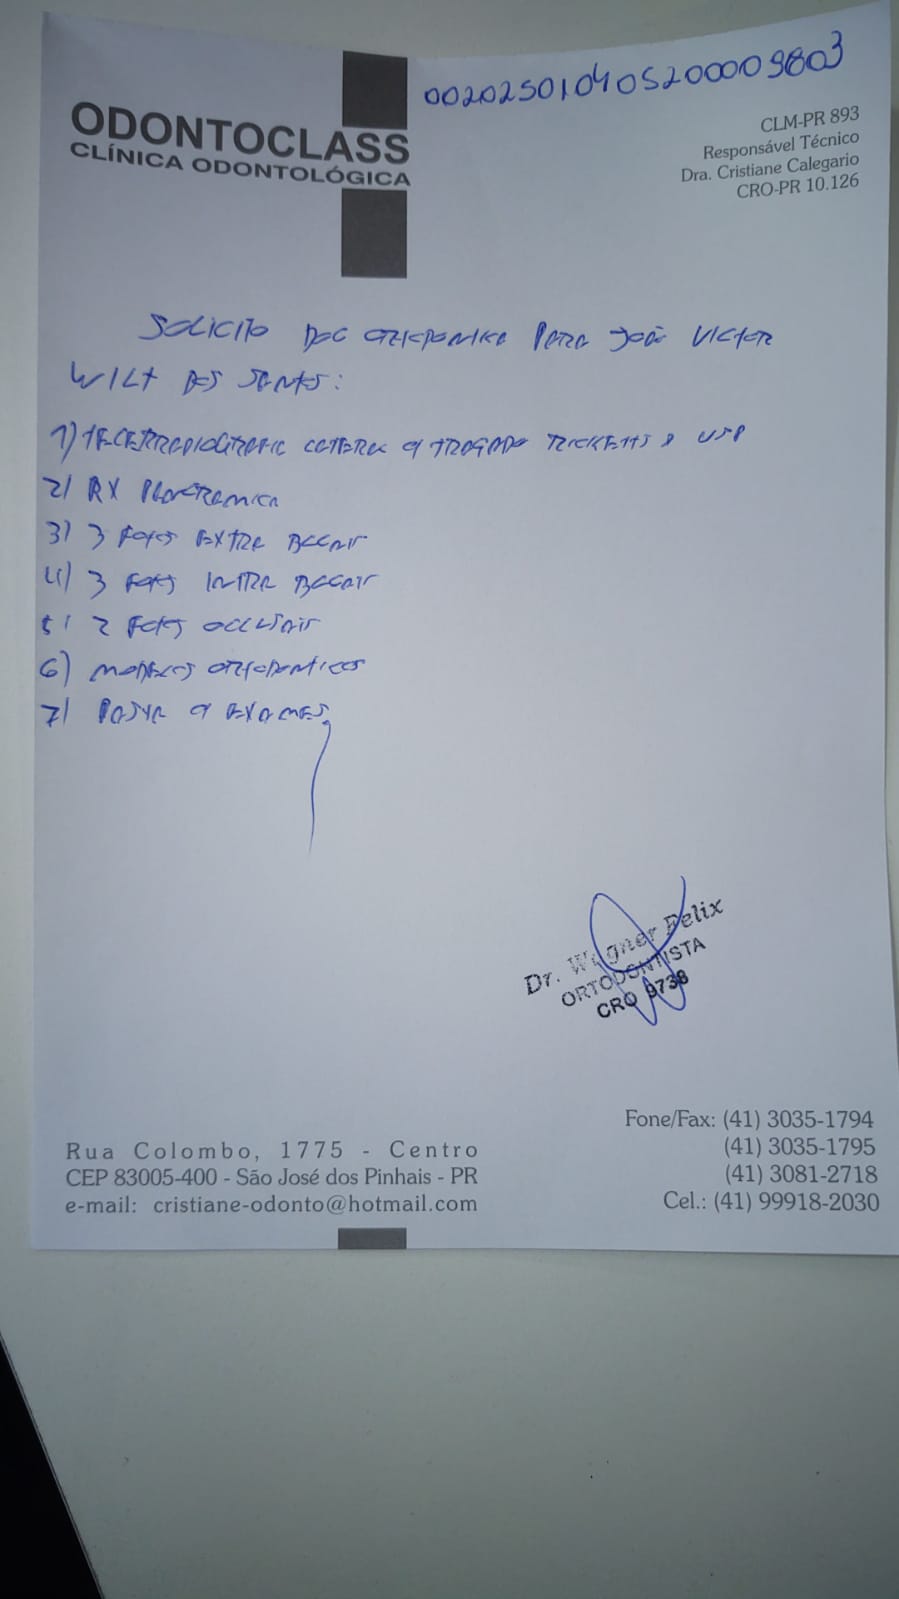 002025010405200009803
ODONTOCLASS
CLÍNICA ODONTOLÓGICA
CLM-PR 893
Responsável Técnico
Dra. Cristiane Calegario
CRO-PR 10.126
SOLICITO DOC ORTODONTICA PARA JOÃO VICTOR
DOS SANTOS:
1) TELERRADIOGRAFIA LATERAL C/ TRAÇADO RICKETTS E USP
2) RX PANORAMICA
3) 3 FOTOS EXTRA BUCAIS
4) 3 FOTOS INTRA BUCAIS
5) 2 FOTOS OCLUSAIS
6) MODELOS ORTODONTICOS
7) PASTA C/ EXAMES
Dr. Wagner Felix
ORTODONTISTA
CRO 9738
Rua Colombo, 1775 - Centro
CEP 83005-400 - São José dos Pinhais - PR
e-mail: cristiane-odonto@hotmail.com
Fone/Fax: (41) 3035-1794
(41) 3035-1795
(41) 3081-2718
Cel.: (41) 99918-2030